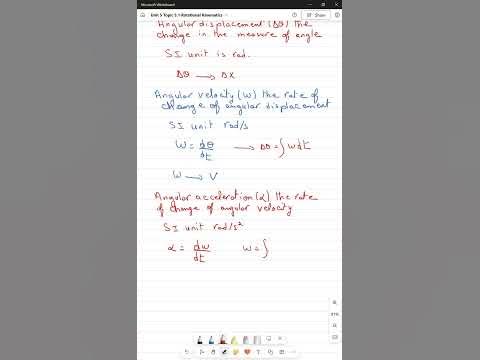 Microsoft Whiteboard
Unit 5 Topic 5.1 Rotational Kinematics
Angular displacement (Δθ) the
change in the measure of angle
SI unit is rad.
Δθ → Δx
Angular velocity (w) the rate of
change of angular displacement
SI unit rad/s
w = dθ/dt → Δθ = ∫ w dt
w → v
Angular acceleration (α) the rate
of change of angular velocity
SI unit rad/s²
α = dw/dt w = ∫